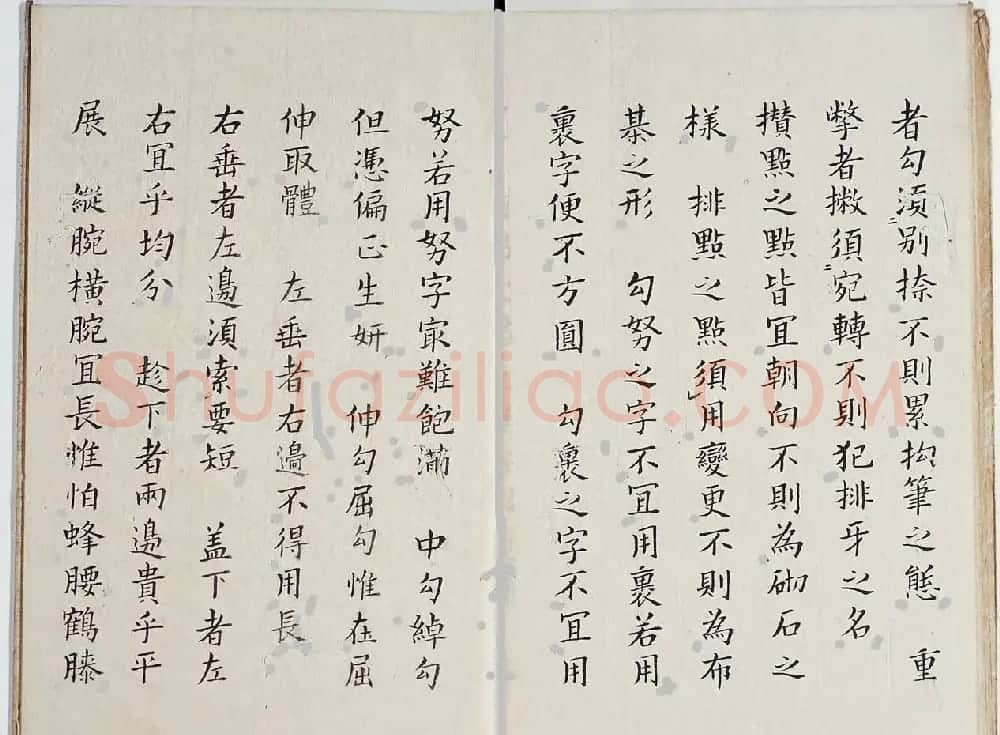 者勾須別捺不則累拘筆之態　重
撆者撇須宛轉不則犯排牙之名
攢點之點皆冝朝向不則為砌石之
樣　排點之點須用變更不則為布
棊之形　勾努之字不冝用裹若用
裹字便不方圓　勾裹之字不冝用
努若用努字㝡難飽滿　中勾綽勾
但憑偏正生妍　伸勾屈勾惟在屈
伸取體　左垂者右邊不得用長
右垂者左邊須索要短　盖下者左
右冝乎均分　趁下者兩邊貴乎平
展　縱腕橫腕冝長惟怕蜂腰鶴膝
Shufaziliao.COM